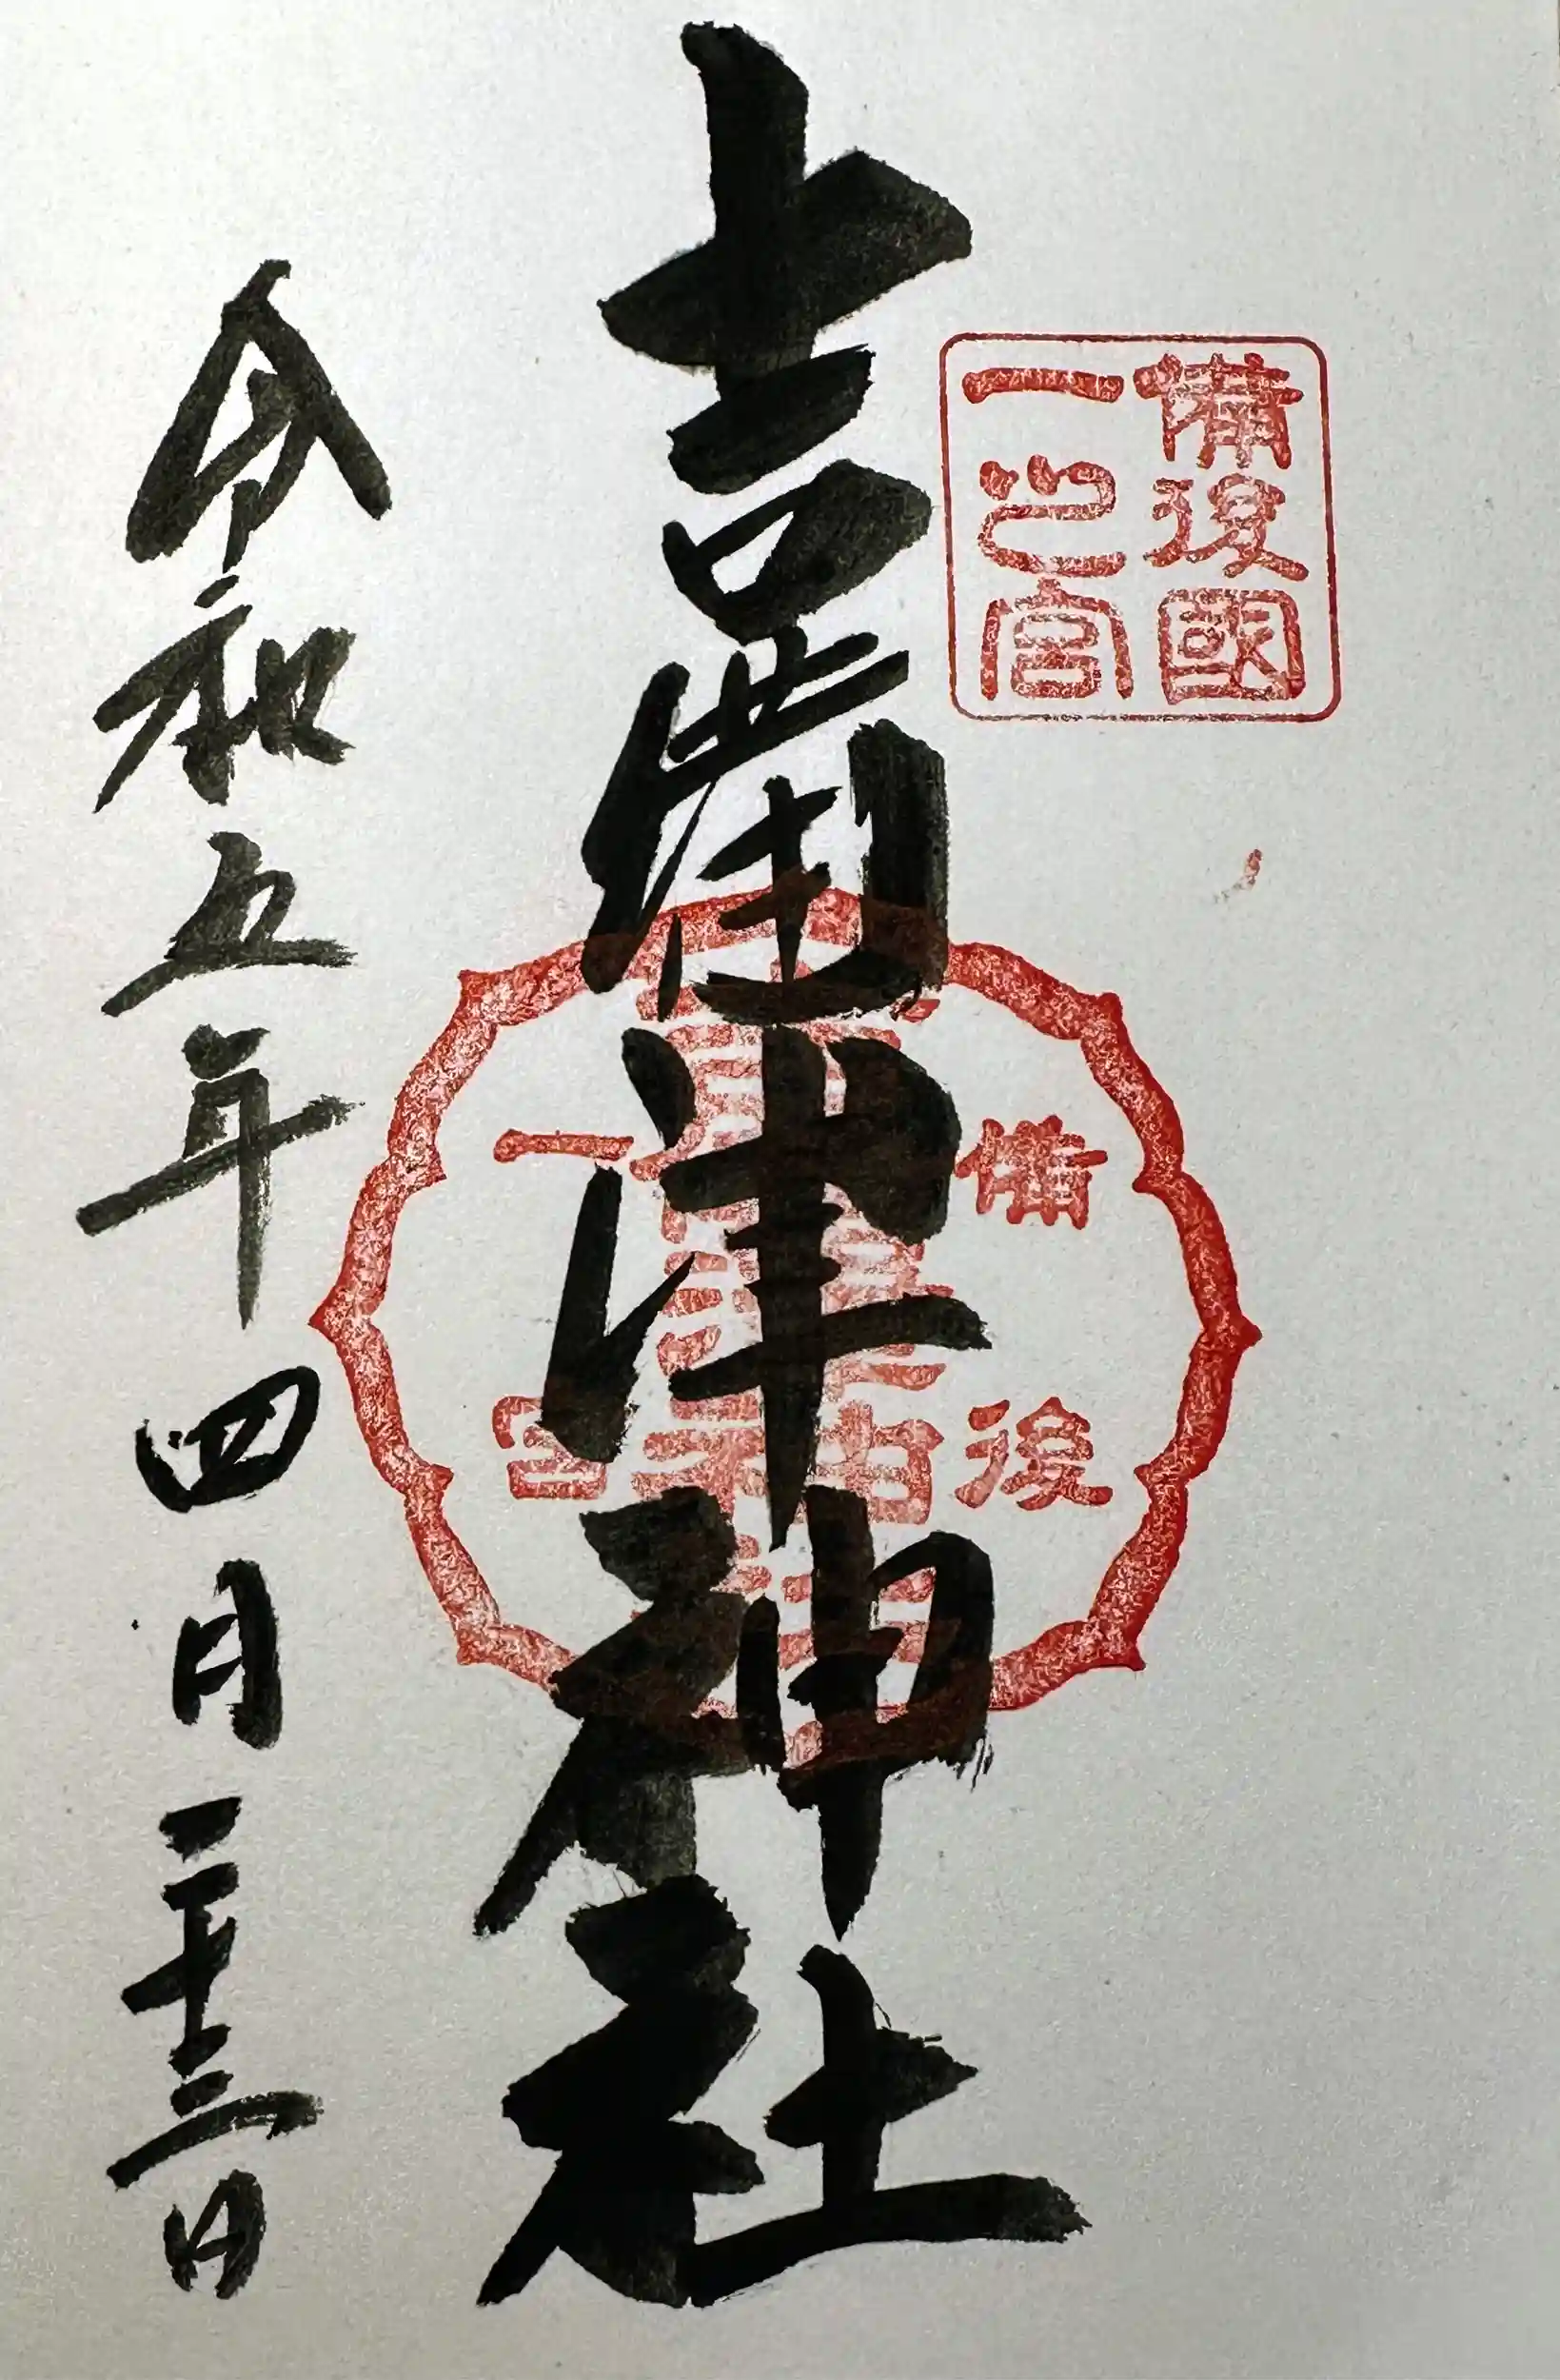 備後國
一之宮
吉備津神社
備後
一宮
令和五年四月二十三日